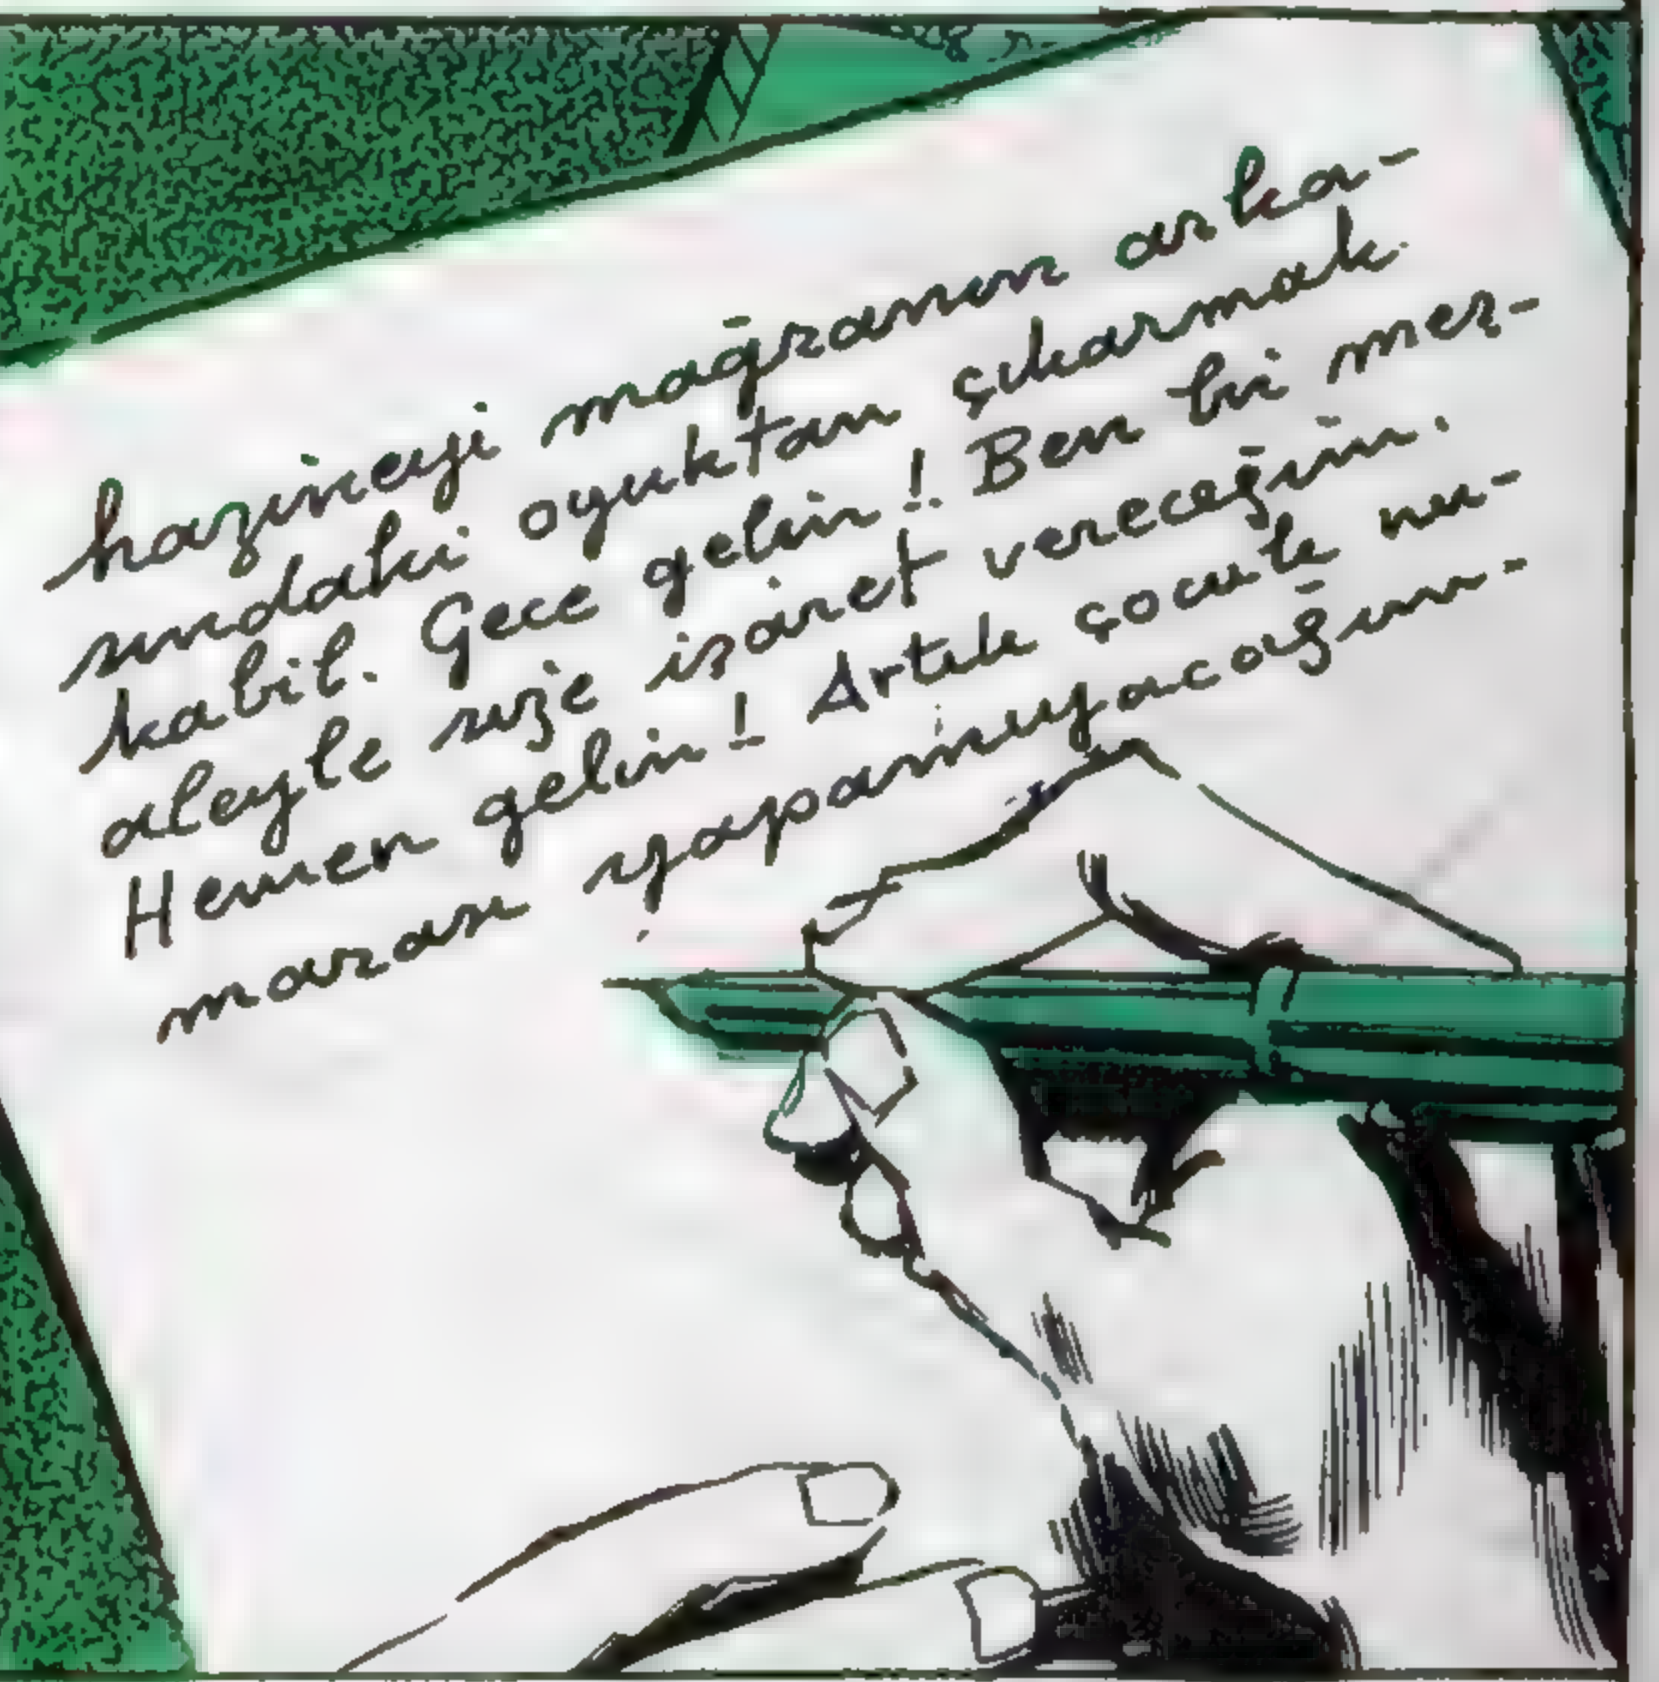 hazineyi mağranın arka-
sındaki oyuktan çıkarmak
kabil. Gece gelin! Ben bir meş-
aleyle size işaret vereceğim.
Hemen gelin! Artık çocuk nu-
marası yapamıyacağım.